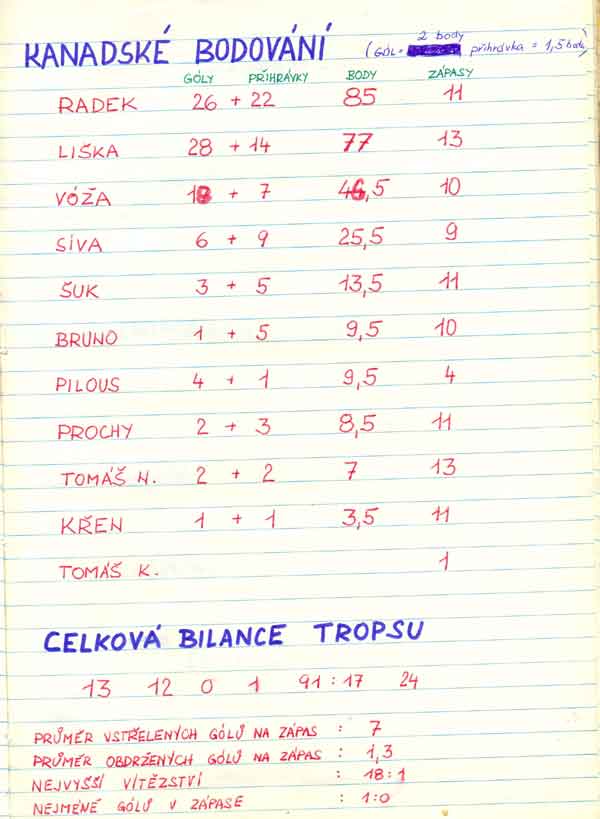 KANADSKÉ BODOVÁNÍ (GÓL = 2 body přihrávka = 1,5 bodu)
GÓLY PŘIHRÁVKY BODY ZÁPASY
RADEK 26 + 22 85 11
LIŠKA 28 + 14 77 13
VÓŽA 18 + 7 46,5 10
SÍVA 6 + 9 25,5 9
ŠUK 3 + 5 13,5 11
BRUNO 1 + 5 9,5 10
PILOUS 4 + 1 9,5 4
PROCHY 2 + 3 8,5 11
TOMÁŠ H. 2 + 2 7 13
KŘEN 1 + 1 3,5 11
TOMÁŠ K. 1
CELKOVÁ BILANCE TROPSU
13 12 0 1 91 : 17 24
PRŮMĚR VSTŘELENÝCH GÓLŮ NA ZÁPAS : 7
PRŮMĚR OBDRŽENÝCH GÓLŮ NA ZÁPAS : 1,3
NEJVYŠŠÍ VÍTĚZSTVÍ : 18:1
NEJMÉNĚ GÓLŮ V ZÁPASE : 1:0